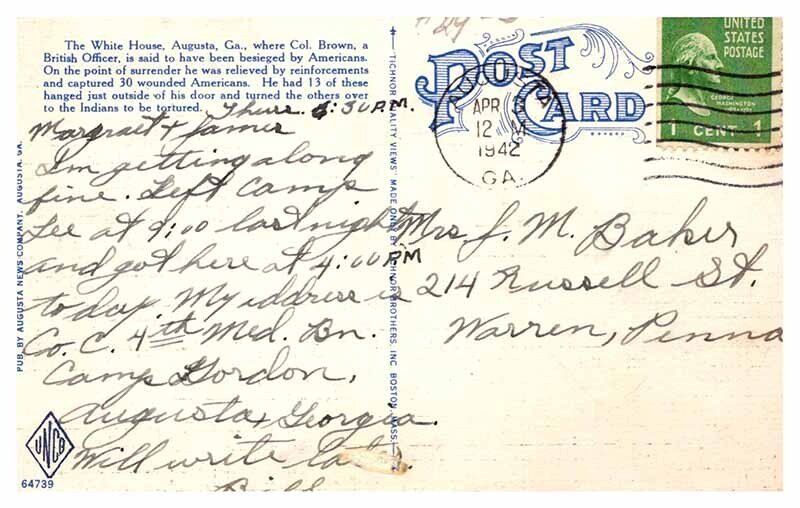 The White House, Augusta, Ga., where Col. Brown, a
British Officer, is said to have been besieged by Americans.
On the point of surrender he was relieved by reinforcements
and captured 30 wounded Americans. He had 13 of these
hanged just outside of his door and turned the others over
to the Indians to be tortured.
Thurs. 8:30 P.M.
Margrait + James
I'm getting along
fine. Left Camp
Lee at 9:00 last night
and got here at 4:00 PM
today. My address is
Co. C. 4th Med. Bn.
Camp Gordon,
Augusta, Georgia.
Will write
Bill
PUB. BY AUGUSTA NEWS COMPANY, AUGUSTA, GA.
UNCB
64739
"TICHNOR QUALITY VIEWS" MADE ONLY BY TICHNOR BROTHERS, INC. BOSTON, MASS.
POST
CARD
APR 3
12 M
1942
GA.
UNITED
STATES
POSTAGE
GEORGE
WASHINGTON
1 CENT 1
Mrs J. M. Baker
214 Russell St.
Warren, Penna